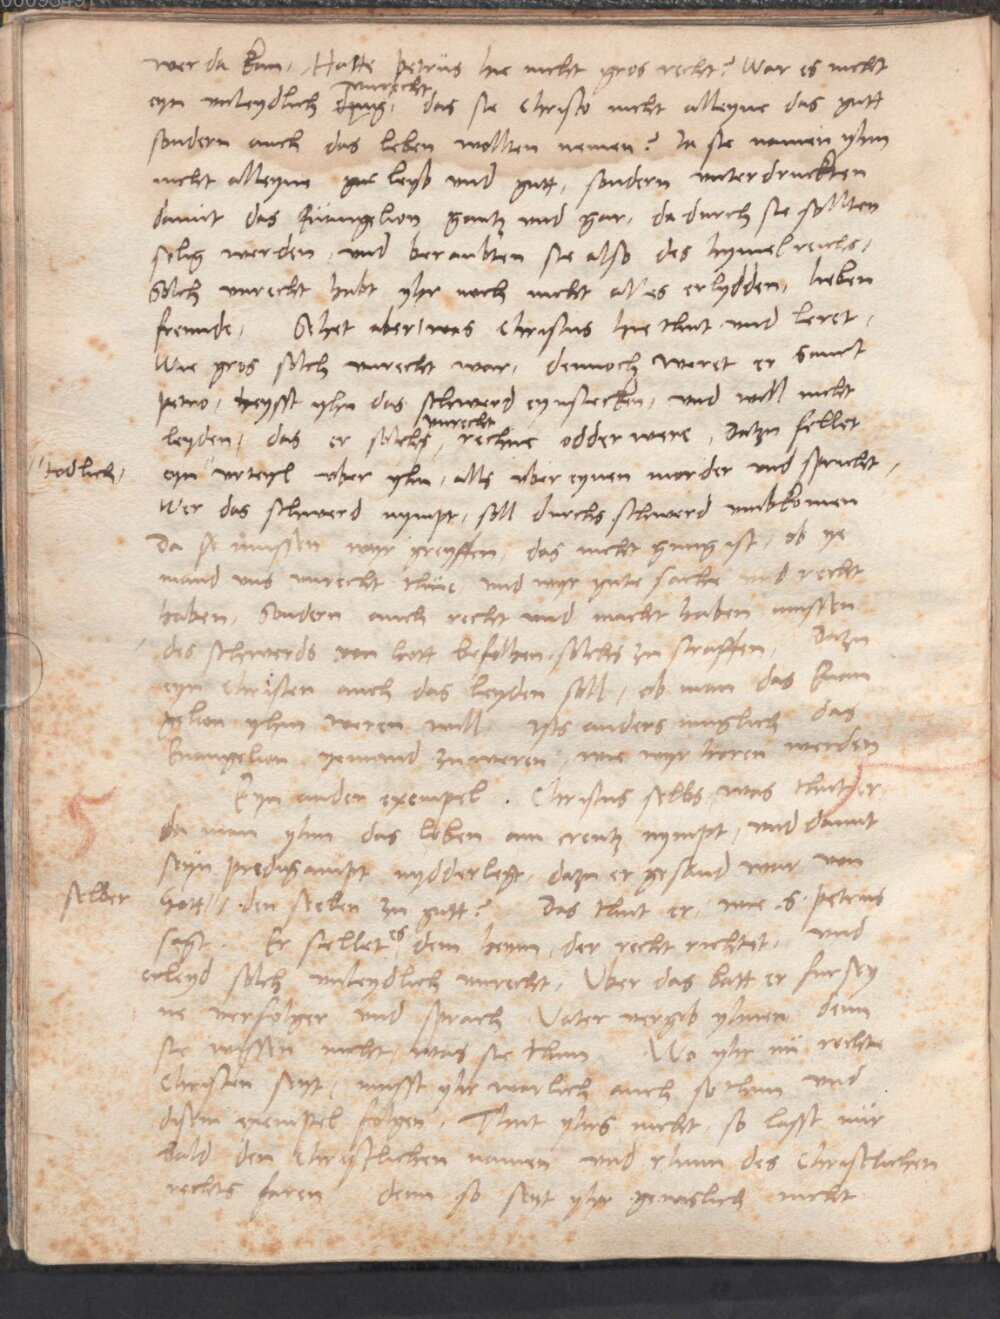 wer da kan, Hatte Petrus hie nicht gros recht? War es nicht
eyn unleydlich unrecht, das sie Christo nicht alleyne das gutt
sondern auch das leben wollten nemen? Ja sie namen yhm
nicht alleyne leyb und gutt, sondern unterdruckten
damit das Euangelion gantz und gar, da durch sie sollten
selig werden, und beraubten sie also des hymelreichs,
Solch unrecht habt yhr noch nicht alles erlydden, lieben
freunde, Sehet aber was Christus hie thut und leret,
Wie gros solch unrecht war, dennoch weret er Sanct
Petro, heysst yhn das schwerd eynstecken, und will nicht
leyden, das er solchs unrecht reche odder were, Datzu fellet
todlich,
eyn urteyl uber yhn, alls uber eynen morder und spricht,
Wer das schwerd nympt, soll durchs schwerd umbkomen
Da mussen wyr greyffen, das nicht gnug ist, ob ye
mand uns unrecht thue, und wyr gute sache und recht
haben, Sondern auch recht und macht haben mussen
des schwerds von Gott befolhen, solchs zu straffen, Dazu
eyn Christen auch das leyden soll, ob man das Euan
gelion yhm weren will, ists anders muglich das
Euangelion yemand zu weren, wie wyr horen werden
Eyn ander exempel. Christus selbs, was thut er
da man yhm das leben am creutz nympt, und damit
seyn predigampt nydderlegt, dazu er gesand war von
selber
Gott, den seelen zu gutt? Das thut er, wie S. Petrus
sagt. Er stellet es dem heym, der recht richtet, und
erleyd solch unleydlich unrecht, Uber das batt er fur sey
ne verfolger und sprach Vater vergib yhnen denn
sie wissen nicht, was sie thun Wo yhr nu rechte
Christen seyt, musst yhr warlich auch so thun und
disem exempel folgen, Thut yhrs nicht, so lasst nur
bald den Christlichen namen und rhum des Christlichen
rechts faren denn so seyt yhr gewislich nicht